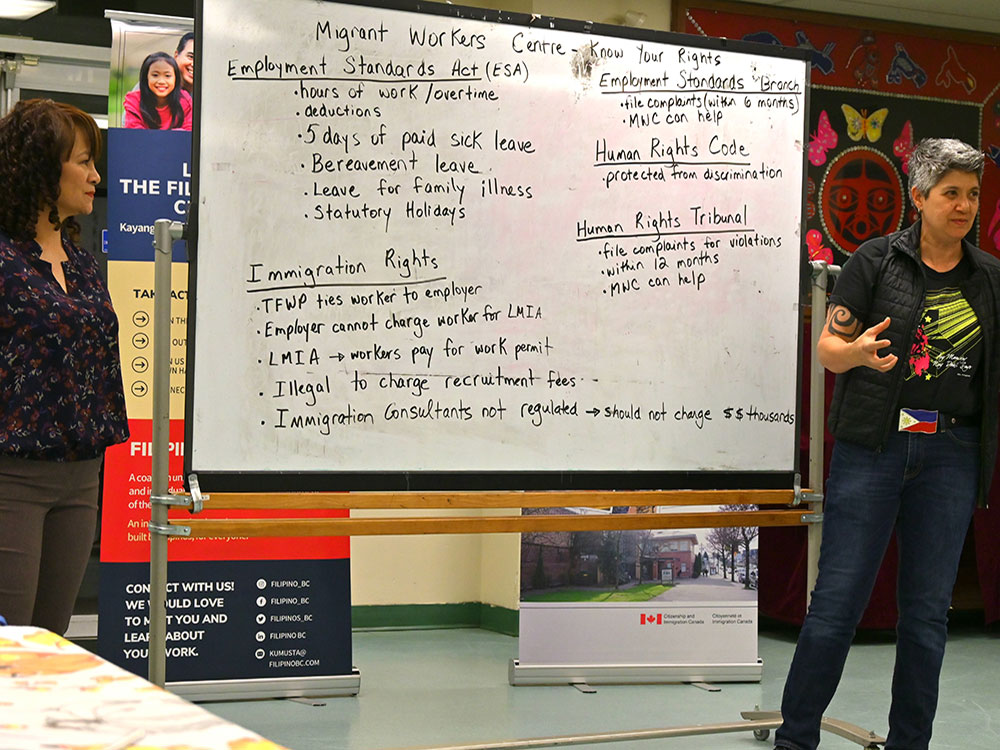 Migrant Workers Centre - Know Your Rights
Employment Standards Act (ESA)
• hours of work / overtime
• deductions
• 5 days of paid sick leave
• Bereavement leave
• Leave for family illness
• Statutory Holidays
Immigration Rights
• TFWP ties worker to employer
• Employer cannot charge worker for LMIA
• LMIA → workers pay for work permit
• Illegal to charge recruitment fees
• Immigration Consultants not regulated → should not charge $$ thousands
Employment Standards Branch
• file complaints (within 6 months)
• MWC can help
Human Rights Code
• protected from discrimination
Human Rights Tribunal
• file complaints for violations
• within 12 months
• MWC can help
THE FIL
Kayang
TAKE ACT
FILIP
A coa
and in
of the
An in
built b
CONNECT WITH US!
WE WOULD LOVE
TO MEET YOU AND
LEARN ABOUT
YOUR WORK.
FILIPINO_BC
FILIPINO_BC
FILIPINOS_BC
FILIPINO BC
KUMUSTA@
FILIPINOBC.COM
Citizenship and
Immigration Canada
Citoyenneté et
Immigration Canada